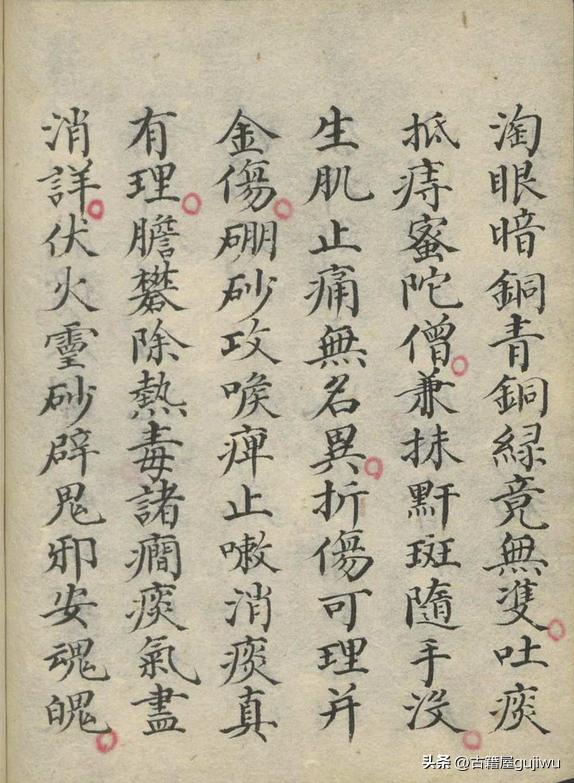 淘眼暗銅青銅緑竟無雙吐痰
抵痔蜜陀僧兼抹黚斑隨手没
生肌止痛無名異折傷可理并
金傷硼砂攻喉痺止嗽消痰真
有理膽礬除熱毒諸癇痰氣盡
消詳伏火靈砂辟鬼邪安魂魄
头条 @古籍屋gujiwu